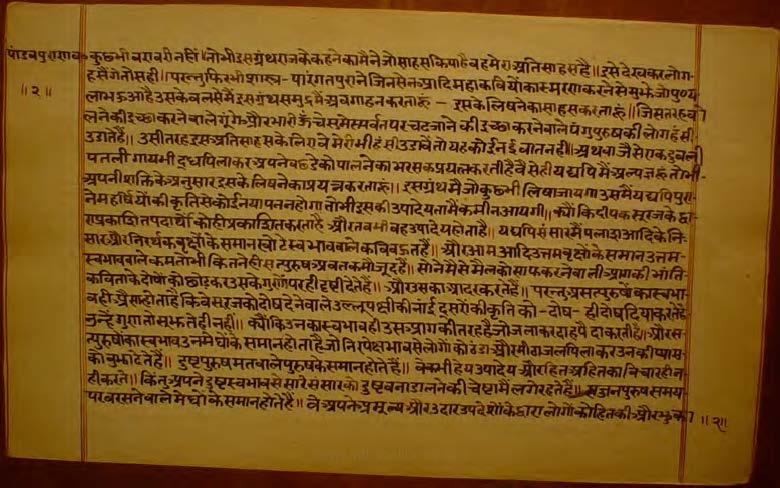 पांडवपुराणव
॥२॥
कुछभी बराबरी नहीं॥ तोभी इस ग्रंथराजके कहनेका मैंने जो साहस किया है वह मेरा प्रति साहस है॥ इसे देखकर लोग
हसेंगे तो सही॥ परन्तु फिरभी शास्त्र-पारंगत पुराने जिनसेन आदि महाकवियोंका स्मरण करनेसे मुझे जो पुण्य
लाभ हुआ है उसके बलसे मैं इस ग्रंथ समुद्रमें अवगाहन करता हूं - इसके लिषनेका साहस करता हूं॥ जिस तरह बो
लनेकी इच्छा करनेवाले गूंगे और भारी ऊँचे सुमेरु पर्वतपर चढ़जानेकी इच्छा करनेवाले पंगु पुरुषकी लोग हंसी
उडाते हैं॥ उसीतरह इस अतिसाहसके लिए वे मेरी भी हंसी उडावें तो यह कोई नई बात नहीं॥ अथवा जैसे एक दुबली
पतली गायभी दुध पिलाकर अपने बछडेको पालनेका भरसक प्रयत्न करती है वैसेही यद्यपि मैं अल्पज्ञ हूं तोभी
अपनी शक्तिके अनुसार इसके लिषनेका प्रयत्न करता हूं॥ इस ग्रंथमें जो कुछभी लिषा जायगा उसमें यद्यपि पुरा
ने महर्षियोंकी कृतिसे कोई नयापन न होगा तोभी इसकी उपादेयतामें कमी न आयगी॥ क्योंकि दीपक सूरजके द्वा
रा प्रकाशित पदार्थोंकोही प्रकाशित करता है और तबभी वह उपादेय होता है॥ यद्यपि संसारमें पलाश आदिके निः
सार और निरर्थक वृक्षोंके समान खोटे स्वभाववाले कवि बहुत हैं॥ और आम आदि उत्तम वृक्षोंके समान उत्तम-
स्वभाववाले कम तोभी कितनेही सत्पुरुष अबतक मौजूद हैं॥ सोनेमेंसे मैलको साफ करनेवाली आगकी भांति
कविताके दोषोंको छोड़कर उसके गुणोंपरही दृष्टी देते हैं॥ और उसका आदर करते हैं॥ परन्तु असत्पुरुषोंका स्वभा-
वही ऐसा होता है कि वे सूरजको दोष देनेवाले उल्लू पक्षीकी नाई दुसरोंकी कृतिको-दोष-ही दोष दिया करते हैं
उन्हें गुण तो सूझतेही नहीं॥ क्योंकि उनका स्वभावही उस आगकी तरह है जो जलाकर दाह पैदा करती है॥ और स
त्पुरुषोंका स्वभाव उन मेघोंके समान होता है जो निरपेक्ष भावसे लोगोंको ठंडा और मीठा जल पिलाकर उनकी प्यास
को बुझा देते हैं॥ दुष्ट पुरुष मतवाले पुरुषके समान होते हैं॥ वे कभी हेय उपादेय और हित अहितका विचारही न
ही करते॥ किंतु अपने दुष्ट स्वभावसे सारे संसारको दुष्ट बना डालनेकी चेष्टामें लगे रहते हैं॥ सज्जन पुरुष समय-
पर बरसनेवाले मेघोंके समान होते हैं॥ वे अपने अमूल्य और उदार उपदेशोंके द्वारा लोगोंको हितकी और झुका
॥२॥